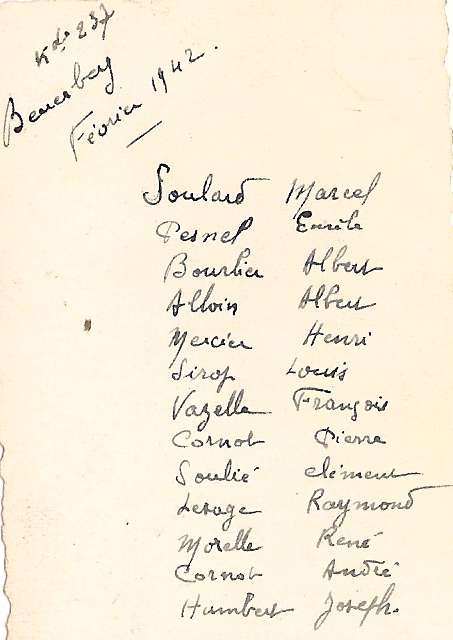 Kdo 237
Benerberg
Février 1942.
Soulard Marcel
Pesnel Emile
Bourlier Albert
Alloin Albert
Mercier Henri
Sirop Louis
Vazelle François
Cornot Pierre
Soulié clément
Lesage Raymond
Morelle René
Cornot André
Humbert Joseph.